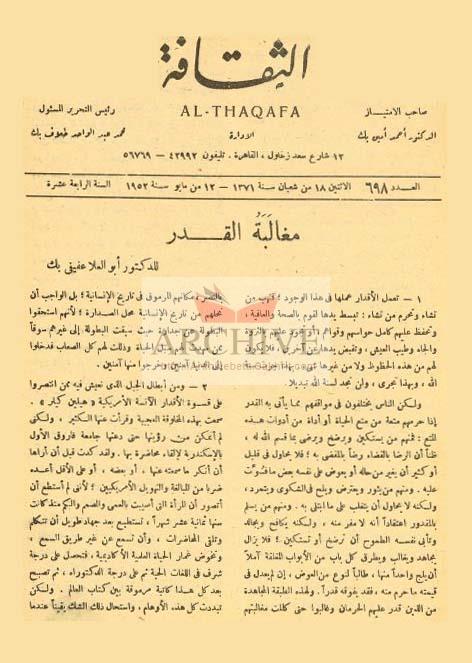 الثقافة
AL-THAQAFA
صاحب الامتياز
الدكتور أحمد أمين بك
رئيس التحرير المسئول
محمد عبد الواحد خلاف بك
الادارة
١٣ شارع سعد زغلول ، القاهرة . تليفون ٤٢٩٩٢ — ٥٦٧٦٩
العدد ٦٩٨ الاثنين ١٨ من شعبان سنة ١٣٧١ — ١٢ من مايو سنة ١٩٥٢ السنة الرابعة عشرة
مغالَبَةُ القدر
للدكتور أبو العلا عفيفي بك
١ — تعمل الأقدار عملها في هذا الوجود ؛ فتهب من
تشاء وتحرم من تشاء : تبسط يدها لقوم بالصحة والعافية ،
وتحفظ عليهم كامل حواسهم وقواهم ، أو تجود عليهم بالثروة
والجاه وطيب العيش ، وتقبض يدها عن آخرين ، فلا يكون
لهم من هذه الحظوظ ولا من غيرها نصيب .
الله ، وبهذا تجرى ، ولن تجد لسنة الله تبديلا .
ولكن الناس يختلفون في مواقفهم مما يأتي به القدر
إذا حرمهم متعة من متع الحياة أو أداة من أدوات هذه
المتع : فمنهم من يستكين ويرضخ ويرضى بما قسم الله له ،
ظناً أن الرضا بالقضاء رضاً بالمقضى به ؛ فلا يحاول في قليل
أو كثير أن يغير من حاله أو يعوض على نفسه بعض ما فسوّت
عليه . ومنهم من يثور ويعترض ويلح في الشكوى ويتمرد ،
ولكنه لا يحاول أن يتغلب على ما ابتلى به . ومنهم من يسلم
بالمقدور اعتقاداً أنه لا مفر منه ، ولكنه يكافح ويجالد
وتأبى نفسه الطموح أن ترضخ أو تستكين ؛ فلا يزال
يجاهد ويغالب ويطرق كل باب من الأبواب المغلقة آملاً
أن يلج واحداً منها ، طالباً نوعا من العوض ، إن لم يعدل في
قيمته ما حرم منه ، فقد يفوقه قدراً . ولهذه الطبقة المجاهدة
من الذين قدر عليهم الحرمان وغالبوا حتى كللت مغالبتهم
بالنصر ، مكانهم المرموق في تاريخ الإنسانية ؛ بل الواجب أن
نجعلهم من تاريخ الإنسانية محل الصدارة : لأنهم استحقوا
البطولة عن جدارة حيث سيقت البطولة إلى غيرهم سوقاً
الحياة وذللت لهم كل الصعاب فدخلوا
آمنين وخرجوا منها آمنين .
٢ — ومن أبطال الجيل الذي نعيش فيه ممن انتصروا
على قسوة الأقدار الآنسة الأمريكية « هيلين كيلر » .
سمعت بهذه المخلوقة العجيبة وقرأت عنها الكثير ، ولكني
لم أتمكن من رؤيتها حتى دعتها جامعة فاروق الأول
بالإسكندرية لإلقاء محاضرة بها . ولقد كدت قبل أن أراها
أن أنكر ما سمعته عنها ، أو بعضه ، أو على الأقل أعده
ضربا من المبالغة والتهويل الأمريكيين ؛ لأنى لم أستطع أن
أتصور أن امرأة التي أصيبت بالعمى والصم والبكم منذ كانت
سنها ثمانية عشر شهراً ، تستطيع بعد جهد طويل أن تتكلم
وتلقى المحاضرات ، وأن تسمع عن غير طريق السمع ،
وتخوض غمار الحياة العلمية الأكاديمية ، فتحصل على درجة
شرف في اللغات الحية ثم على درجة الدكتوراه ، ثم تصبح
بعد كل هذا كاتبة مرموقة بين كتاب العالم . ولكن
تبددت كل هذه الأوهام ، واستحال ذلك الشك يقيناً عندما
ARCHIVE